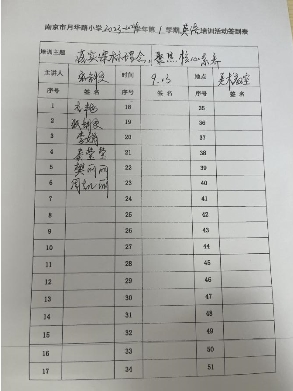 南京市月华路小学2023-2024学年第1学期英语培训活动签到表
培训主题 落实课标理念，聚焦核心素养
主讲人 时间 9.13 地点 美术教室
序号 签名 序号 签名 序号 签名
1 18 35
2 19 36
3 20 37
4 21 38
5 樊丽丽 22 39
6 23 40
7 24 41
8 25 42
9 26 43
10 27 44
11 28 45
12 29 46
13 30 47
14 31 48
15 32 49
16 33 50
17 34 51